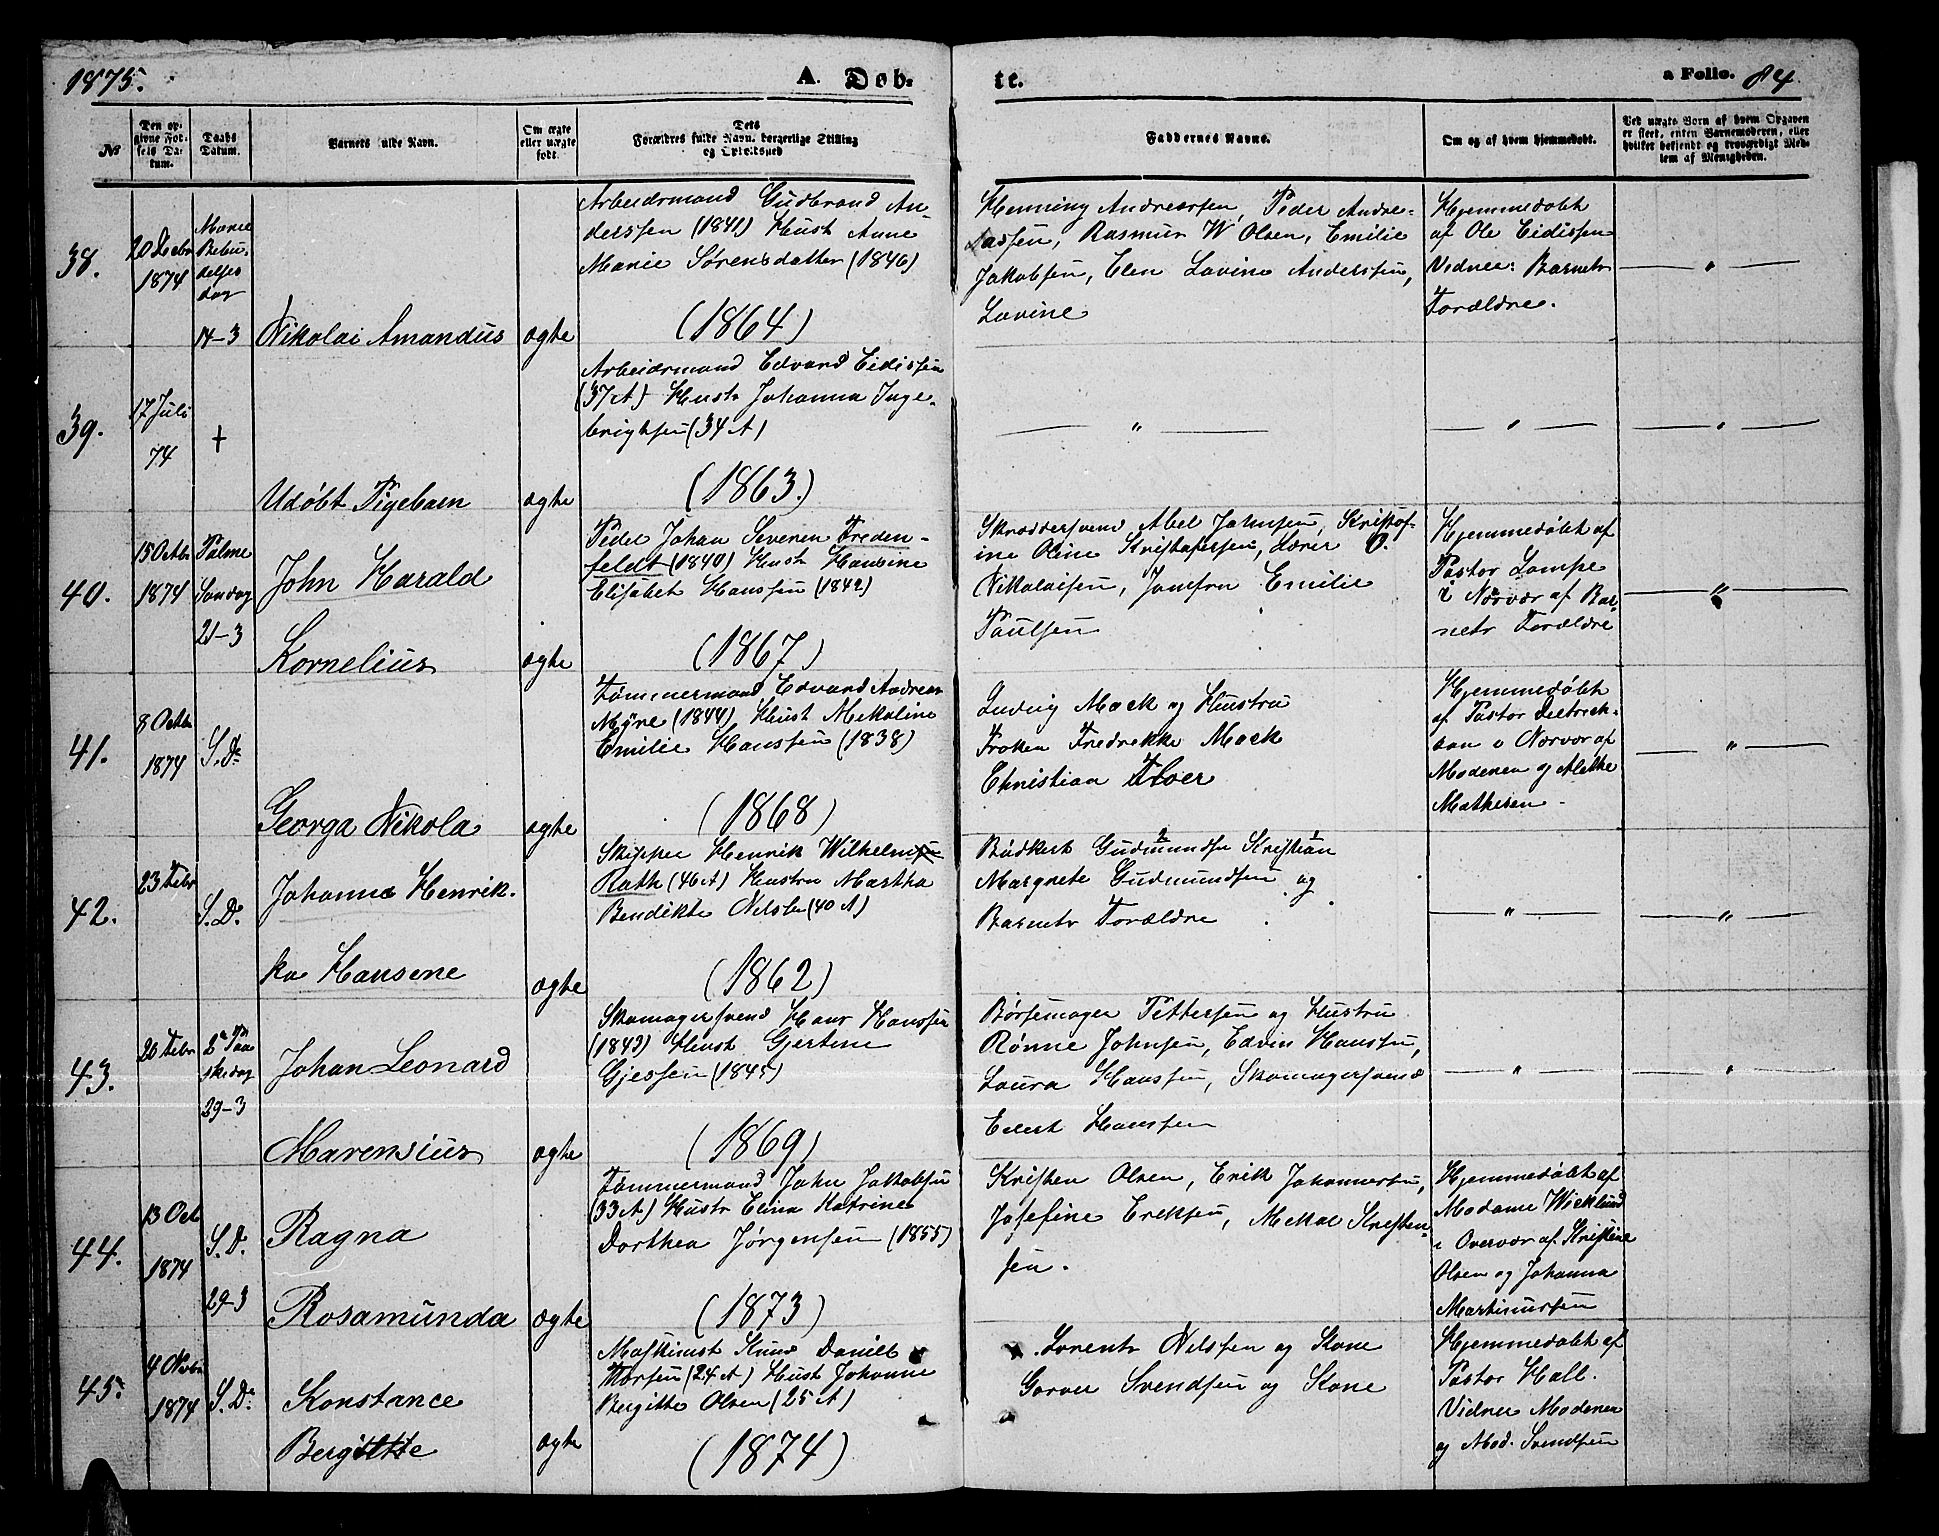 1875.
A. Døb-
te.
a Folio. 84
№
Den op-
givne Fød-
sels Da-
tum.
Daabs
Datum.
Barnets fulde Navn.
Om ægte
eller uægte
født.
Dets
Forældres fulde Navn, borgerlige Stilling
og Opholdssted
Faddernes Navne.
Om og af hvem hjemmedøbt.
Ved uægte Børn af hvem Opgaven
er skeet, enten Barnemoderen, eller
hvilket bekjendt og troværdigt Med-
lem af Menigheden.
38.
20 Decbr
1874
Marie
Bebu-
delses
dag
14-3
Nikolai Amandus
ægte
Arbeidsmand Gudbrand An-
derssen (1841) Hust Anne
Marie Sørensdatter (1846)
(1864)
Henning Andreassen, Peder Andre-
assen, Rasmus W Olsen, Emilie
Jakobsen, Elen Lovine Anderssen,
Lovine
Hjemmedøbt
af Ole Eidissen
Vidner: Barnets
Forældre.
"
39.
17 Juli
74
+
Udøbt Pigebarn
ægte
Arbeidsmand Edvard Eidissen
(37 A) Hustr Johanna Inge-
brigtsen (34 A)
(1863.)
"
"
"
40.
15 Octbr
1874
Palme
Søndag
21-3
John Harald
Kornelius
ægte
Peder Johan Severin Freden-
feldt (1840) Hust Hansine
Elisabet Hanssen (1842)
(1867)
Skræddersvend Abel Johnsen, Kristof-
ine Oline Kristofersen, Lærer O.
Nikolaisen, Jomfru Emilie
Paulsen
Hjemmedøbt af
Pastor Lampe
i Norvær af Bar-
nets Forældre
"
41.
8 Octbr
1874
S.D.
Georga Nikola
ægte
Tømmermand Edvard Andreas
Myre (1844) Hust Nikoline
Emilie Hanssen (1838)
(1868)
Ludvig Mack og Hustru
Frøken Fredrekke Mack
Christian Floer
Hjemmedøbt
af Pastor Dietrich-
son i Norvær af
Moderen og Alette
Mathesen.
"
42.
23 Febr
S.D.
Johanna Henrik-
ka Hansene
ægte
Skipper Henrik Wilhelmsen
Rath (46 A) Hustru Martha
Bendikte Nilsdtr (40 A)
(1862)
Bødkert Gudmundsen Kristian
Margrete Gudmundsen og
Barnets Forældre
"
"
43.
26 Febr
2den Paa
skedag
29-3
Johan Leonard
Marensius
ægte
Skomagersvend Hans Hanssen
(1843) Hust Gjertine
Gjessen (1845)
(1869)
Børsemager Pettersen og Hustru
Rønne Johnsen, Edvin Hanssen,
Laura Hanssen, Skomagersvend
Edert Hanssen
"
"
44.
13 Oct
1874
S.D.
29-3
Ragna
Rosamunda
ægte
Tømmermand John Jakobsen
(33 A) Hustr Elina Katrine
Dorthea Jørgensen (1855)
(1873)
Kristen Olsen, Erik Johannesen,
Josefine Eriksen, Mekal Kristen-
sen.
Hjemmedøbt af
Madame Wicklund
i Overvær af Kristine
Olsen og Johanna
Martinussen
45.
4 Novbr
1874
S.D.
Konstance
Bergitte
ægte
Maskinist Knud Daniel
Thorsen (24 A) Hust Johanne
Bergitte Olsen (25 A)
(1874)
Lorents Nilssen og Kone
Gorver Svendsen og Kone
Hjemmedøbt af
Pastor Hall.
Vidner Moderen
og Mad. Svendsen